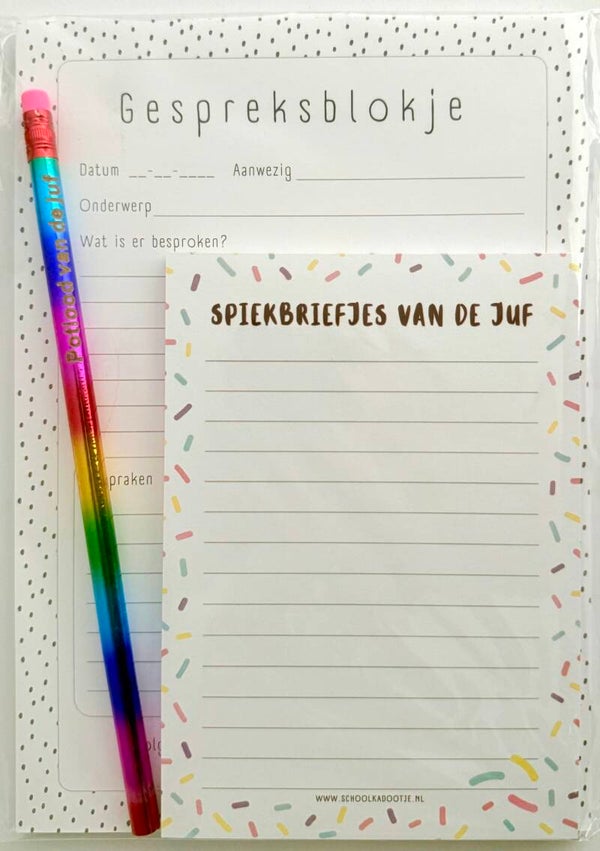 Gespreksblokje
Datum __-__-____ Aanwezig
Onderwerp
Wat is er besproken?
Potlood van de juf
SPIEKBRIEFJES VAN DE JUF
praken
WWW.SCHOOLKADOOTJE.NL